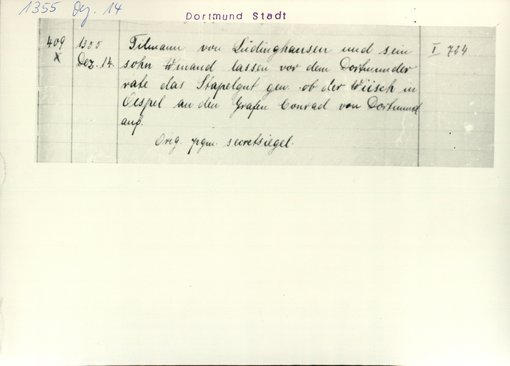 1355 Dez. 14
Dortmund Stadt
409 1355 Tilmann von Lüdinghausen und sein I 724
X Dez. 14. sohn Wenand lassen vor dem Dortmunder
rate das Stapelgut gen. ob der Wiisch in
Oespel an den Grafen Conrad von Dortmund
auf.
Orig. pgm. secretsiegel.